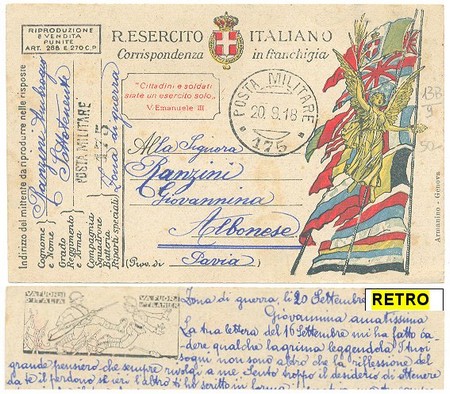 RIPRODUZIONE
E VENDITA
PUNITE
ART. 268 E 270 C.P.
R. ESERCITO ITALIANO
Corrispondenza in franchigia
"Cittadini e soldati
siate un esercito solo"
V. Emanuele III
POSTA MILITARE
20.9.18
175
Indirizzo del mittente da riprodurre nelle risposte
Cognome
e Nome
Grado
Reggimento
e Arma
Compagnia
Squadrone
Batteria
Riparti speciali
Ranzini Ambrogio
Sottotenente
POSTA MILITARE
175
Zona di guerra
Alla Signora
Ranzini
Giovannina
Albonese
Prov. di Pavia
Armanino - Genova
RETRO
VA FUORI
D'ITALIA
VA FUORI
STRANIER
Zona di guerra, li 20 Settembre
Giovannina amatissima
La tua lettera del 16 Settembre mi ha fatto ca-
dere qualche lagrima leggendola I tuoi
sogni non sono altro che la riflessione del
grande pensiero che sempre rivolgi a me Sento troppo il desiderio di ottenere
da te il perdono se ieri l'altro ti ho scritto in forma